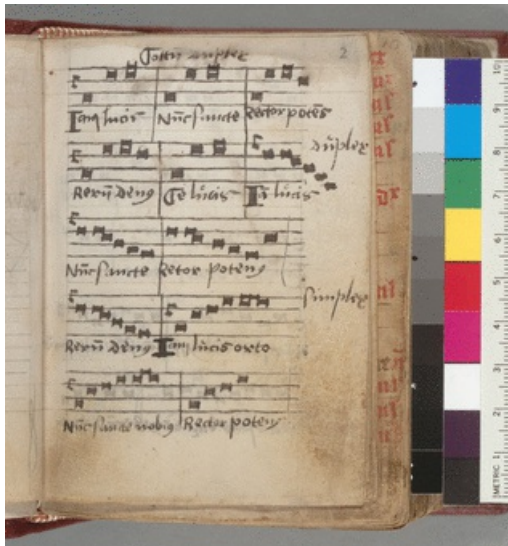 Totū duplex 2
Iam lucis Nūc sancte Rector potēs
duplex
Rerū deus Te lucis Iā lucis
Nūc sancte Rector potens
simplex
Rerū deus Iam lucis orto
Nūc sancte nobis Rector potens
METRIC 1 2 3 4 5 6 7 8 9 10